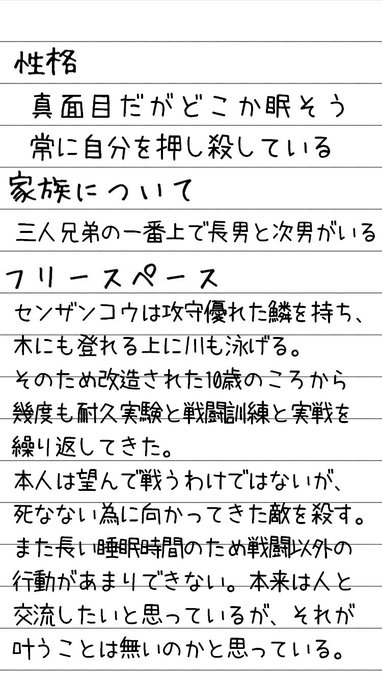 性格
真面目だがどこか眠そう
常に自分を押し殺している
家族について
三人兄弟の一番上で長男と次男がいる
フリースペース
センザンコウは攻守優れた鱗を持ち、
木にも登れる上に川も泳げる。
そのため改造された10歳のころから
幾度も耐久実験と戦闘訓練と実戦を
繰り返してきた。
本人は望んで戦うわけではないが、
死なない為に向かってきた敵を殺す。
また長い睡眠時間のため戦闘以外の
行動があまりできない。本来は人と
交流したいと思っているが、それが
叶うことは無いのかと思っている。